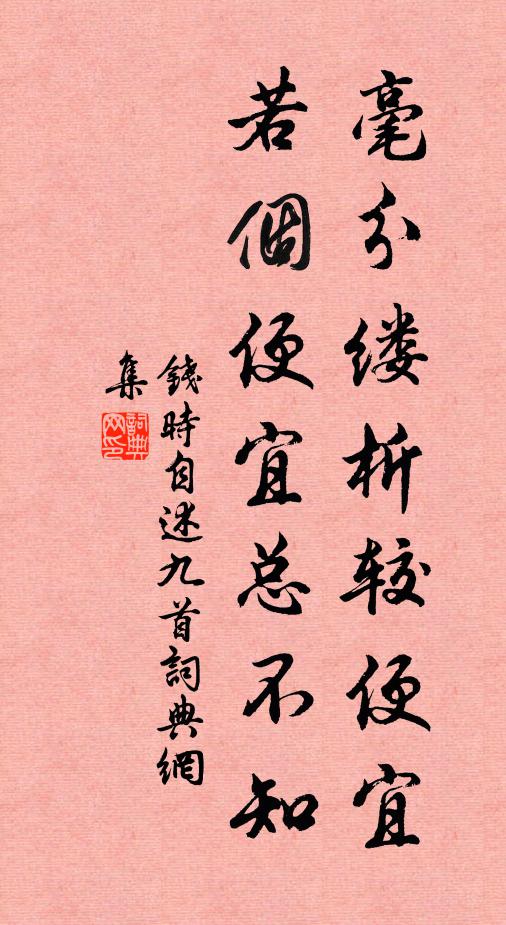 毫分缕析较便宜
若個便宜总不知
錢時自述九首詞典網
集
詞典
网印